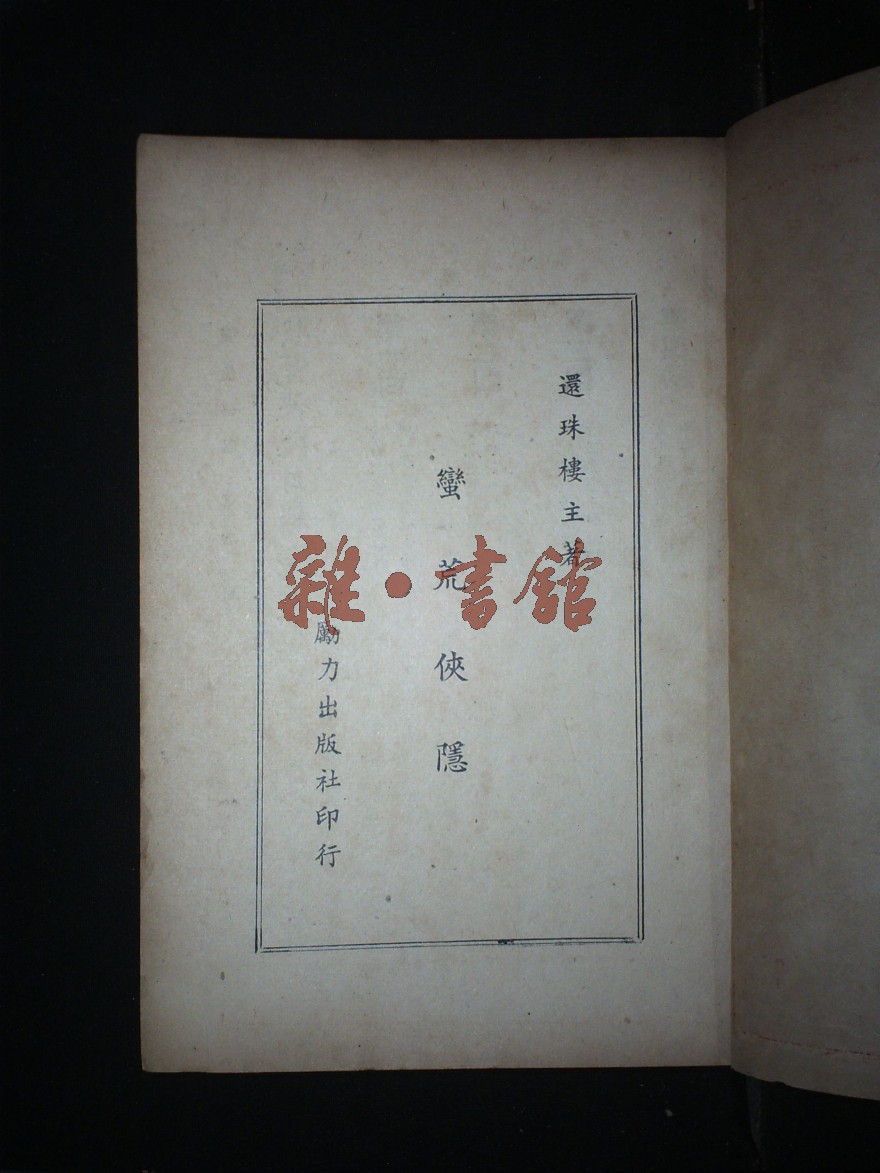 還珠樓主著
蠻荒俠隱
勵力出版社印行
雜·書館